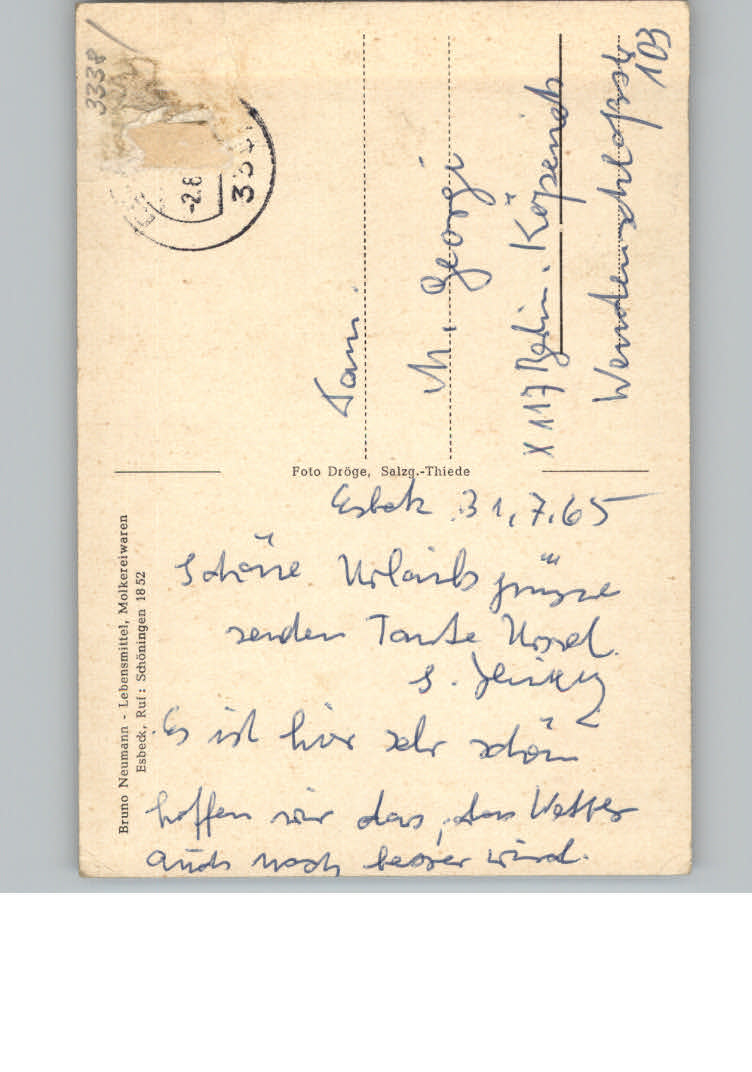 Esbek 31.7.65
Schöne Urlaubsgrüsse
senden Tante Ursel
Es ist hier sehr schön
hoffen wir das, das Wetter
auch noch besser wird.
Fam.
M. Georgi
X 117 Berlin. Köpenick
Wendenschloßstr
103
Foto Dröge, Salzg.-Thiede
Bruno Neumann - Lebensmittel, Molkereiwaren
Esbeck, Ruf: Schöningen 18 52
3338
-2.8